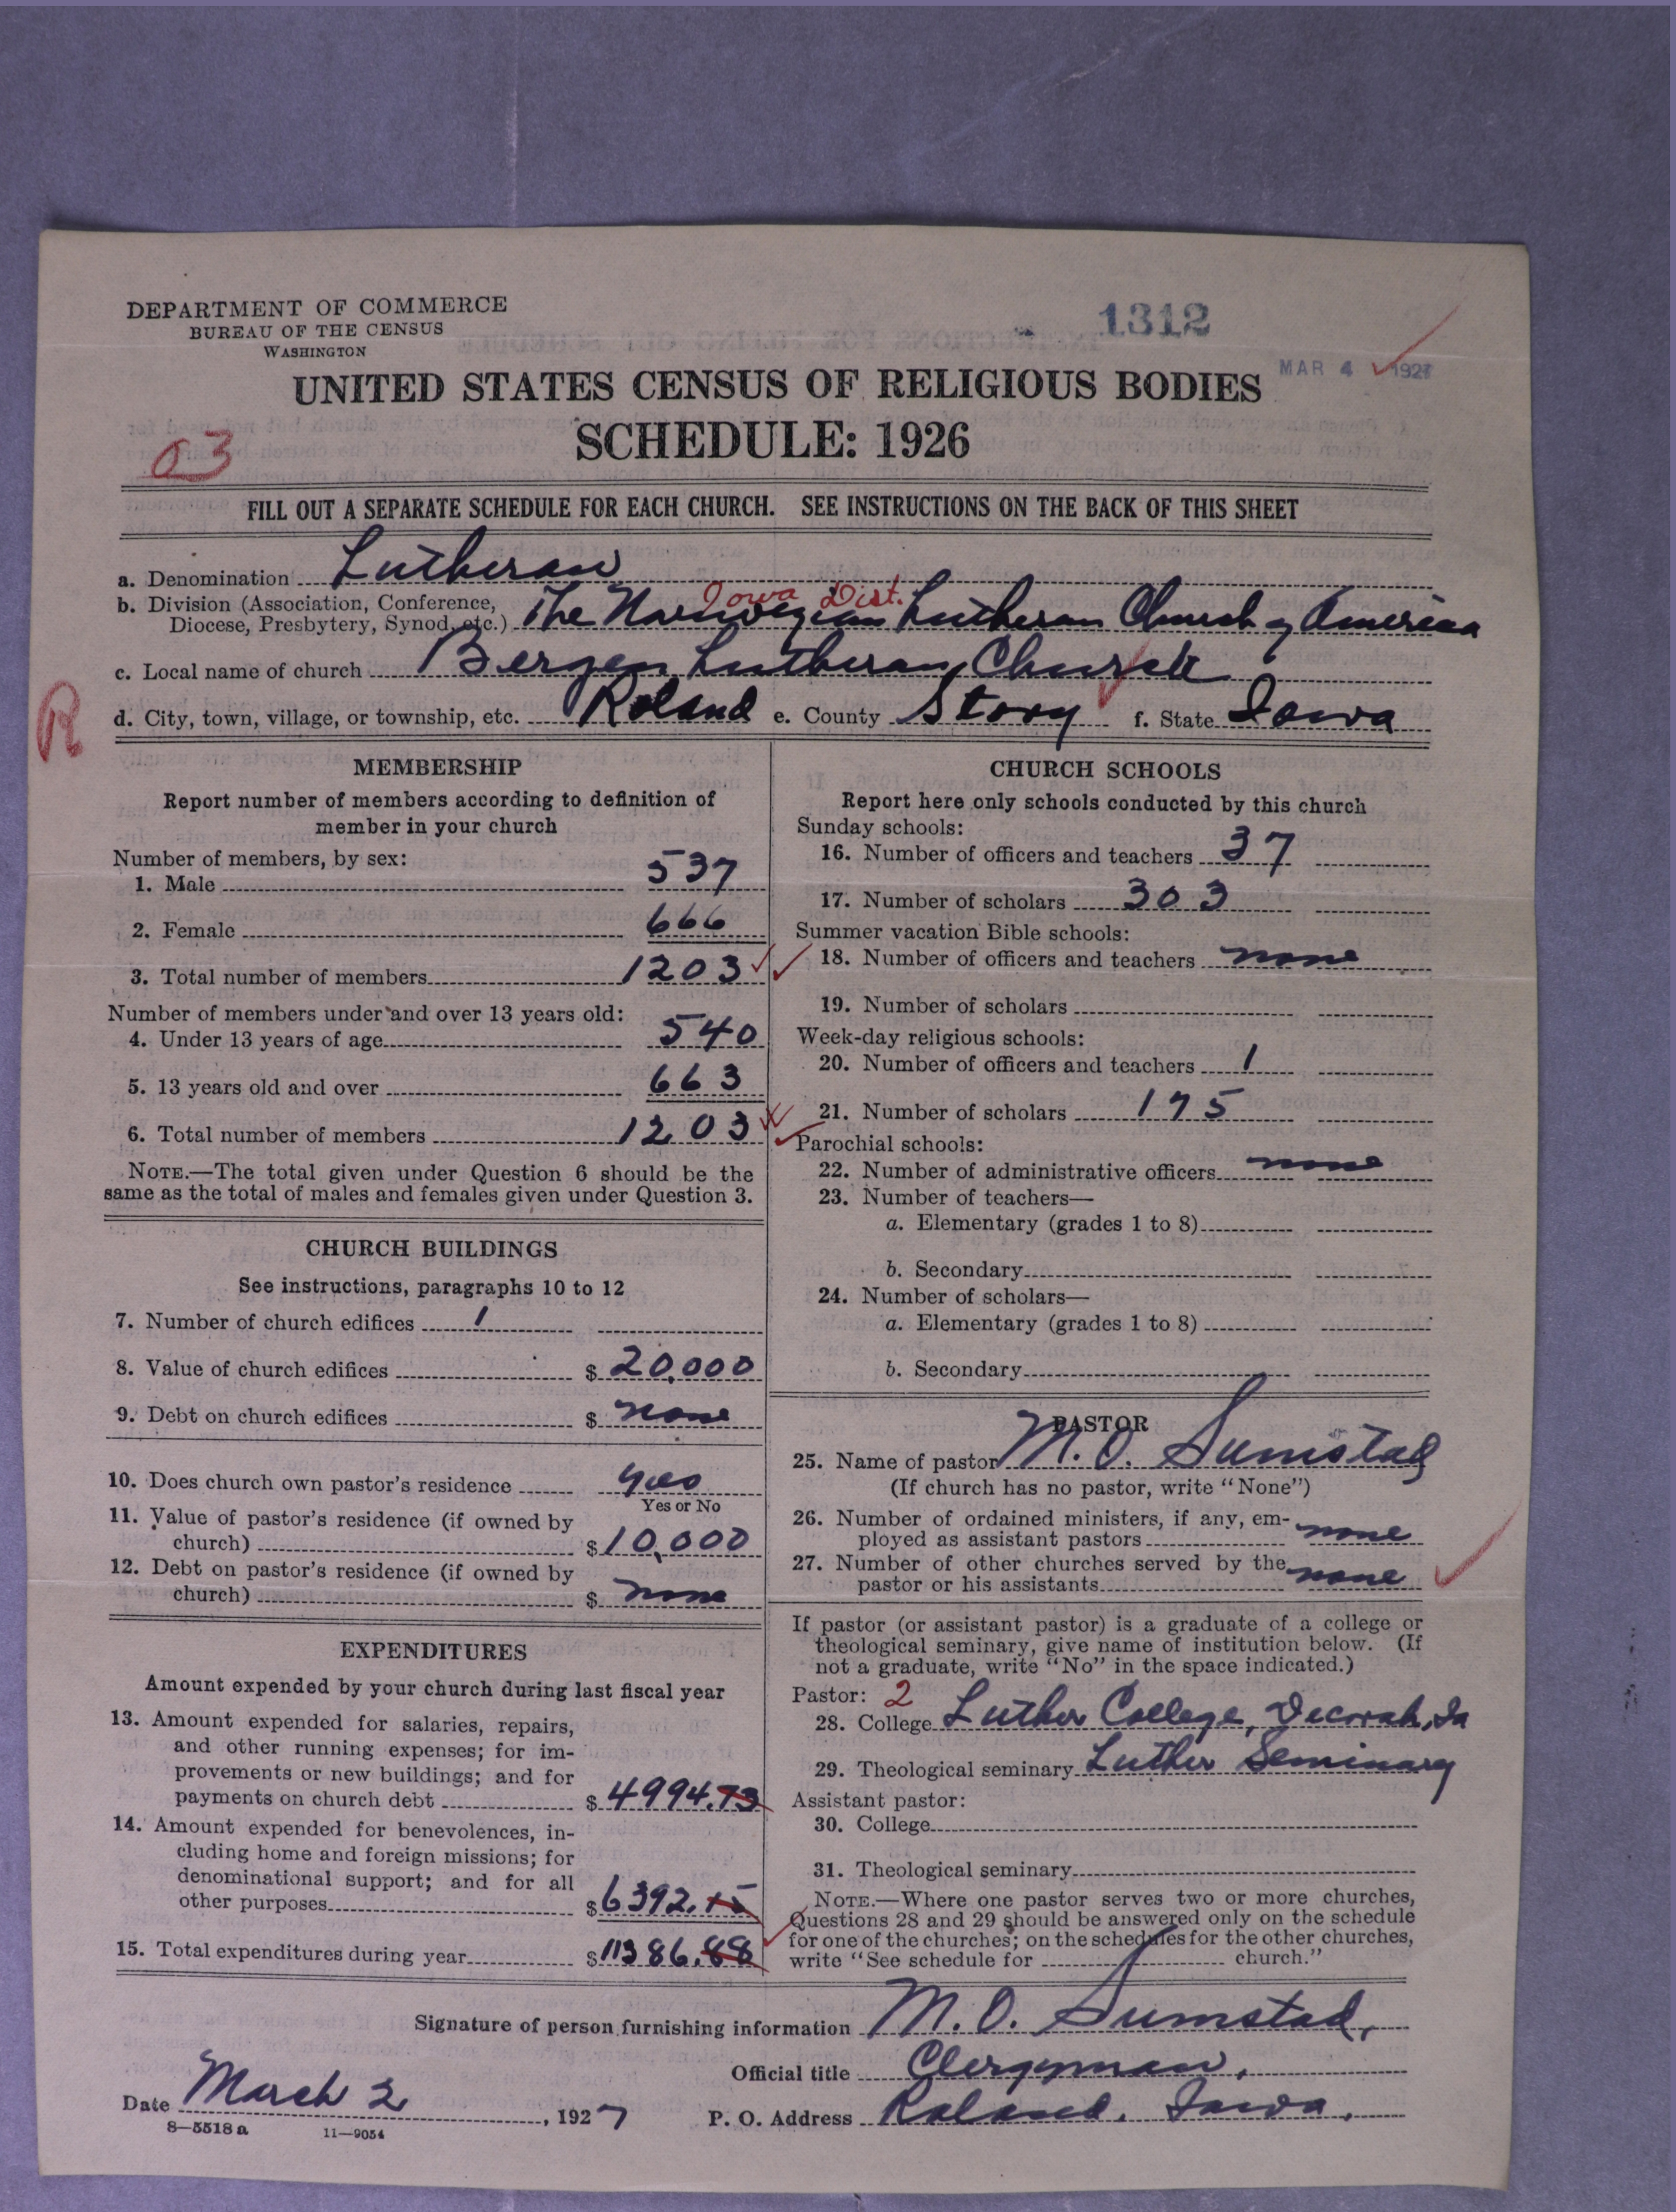 DEPARTMENT OF COMMERCE
BUREAU OF THE CENSUS
WASHINGTON
1312
MAR 4 1927
UNITED STATES CENSUS OF RELIGIOUS BODIES
SCHEDULE: 1926
03
FILL OUT A SEPARATE SCHEDULE FOR EACH CHURCH. SEE INSTRUCTIONS ON THE BACK OF THIS SHEET
a. Denomination Lutheran
Iowa Dist.
b. Division (Association, Conference,
Diocese, Presbytery, Synod, etc.) The Norwegian Lutheran Church of America
c. Local name of church Bergen Lutheran Church
R
d. City, town, village, or township, etc. Roland e. County Story f. State Iowa
MEMBERSHIP
Report number of members according to definition of
member in your church
Number of members, by sex:
1. Male 537
2. Female 666
3. Total number of members 1203
Number of members under and over 13 years old:
4. Under 13 years of age 540
5. 13 years old and over 663
6. Total number of members 1203
NOTE.—The total given under Question 6 should be the
same as the total of males and females given under Question 3.
CHURCH BUILDINGS
See instructions, paragraphs 10 to 12
7. Number of church edifices 1
8. Value of church edifices $ 20,000
9. Debt on church edifices $ none
10. Does church own pastor's residence yes
Yes or No
11. Value of pastor's residence (if owned by
church) $ 10,000
12. Debt on pastor's residence (if owned by
church) $ none
EXPENDITURES
Amount expended by your church during last fiscal year
13. Amount expended for salaries, repairs,
and other running expenses; for im-
provements or new buildings; and for
payments on church debt $ 4994.73
14. Amount expended for benevolences, in-
cluding home and foreign missions; for
denominational support; and for all
other purposes $ 6392.15
15. Total expenditures during year $ 11386.88
CHURCH SCHOOLS
Report here only schools conducted by this church
Sunday schools:
16. Number of officers and teachers 37
17. Number of scholars 303
Summer vacation Bible schools:
18. Number of officers and teachers none
19. Number of scholars
Week-day religious schools:
20. Number of officers and teachers 1
21. Number of scholars 175
Parochial schools:
22. Number of administrative officers none
23. Number of teachers—
a. Elementary (grades 1 to 8)
b. Secondary
24. Number of scholars—
a. Elementary (grades 1 to 8)
b. Secondary
PASTOR
25. Name of pastor M. O. Sumstad
(If church has no pastor, write "None")
26. Number of ordained ministers, if any, em-
ployed as assistant pastors none
27. Number of other churches served by the
pastor or his assistants none
If pastor (or assistant pastor) is a graduate of a college or
theological seminary, give name of institution below. (If
not a graduate, write "No" in the space indicated.)
Pastor: 2
28. College Luther College, Decorah, Ia
29. Theological seminary Luther Seminary
Assistant pastor:
30. College
31. Theological seminary
NOTE.—Where one pastor serves two or more churches,
Questions 28 and 29 should be answered only on the schedule
for one of the churches; on the schedules for the other churches,
write "See schedule for church."
Signature of person furnishing information M. O. Sumstad,
Official title Clergyman,
Date March 2, 1927
P. O. Address Roland, Iowa.
8—5518 a 11—9054